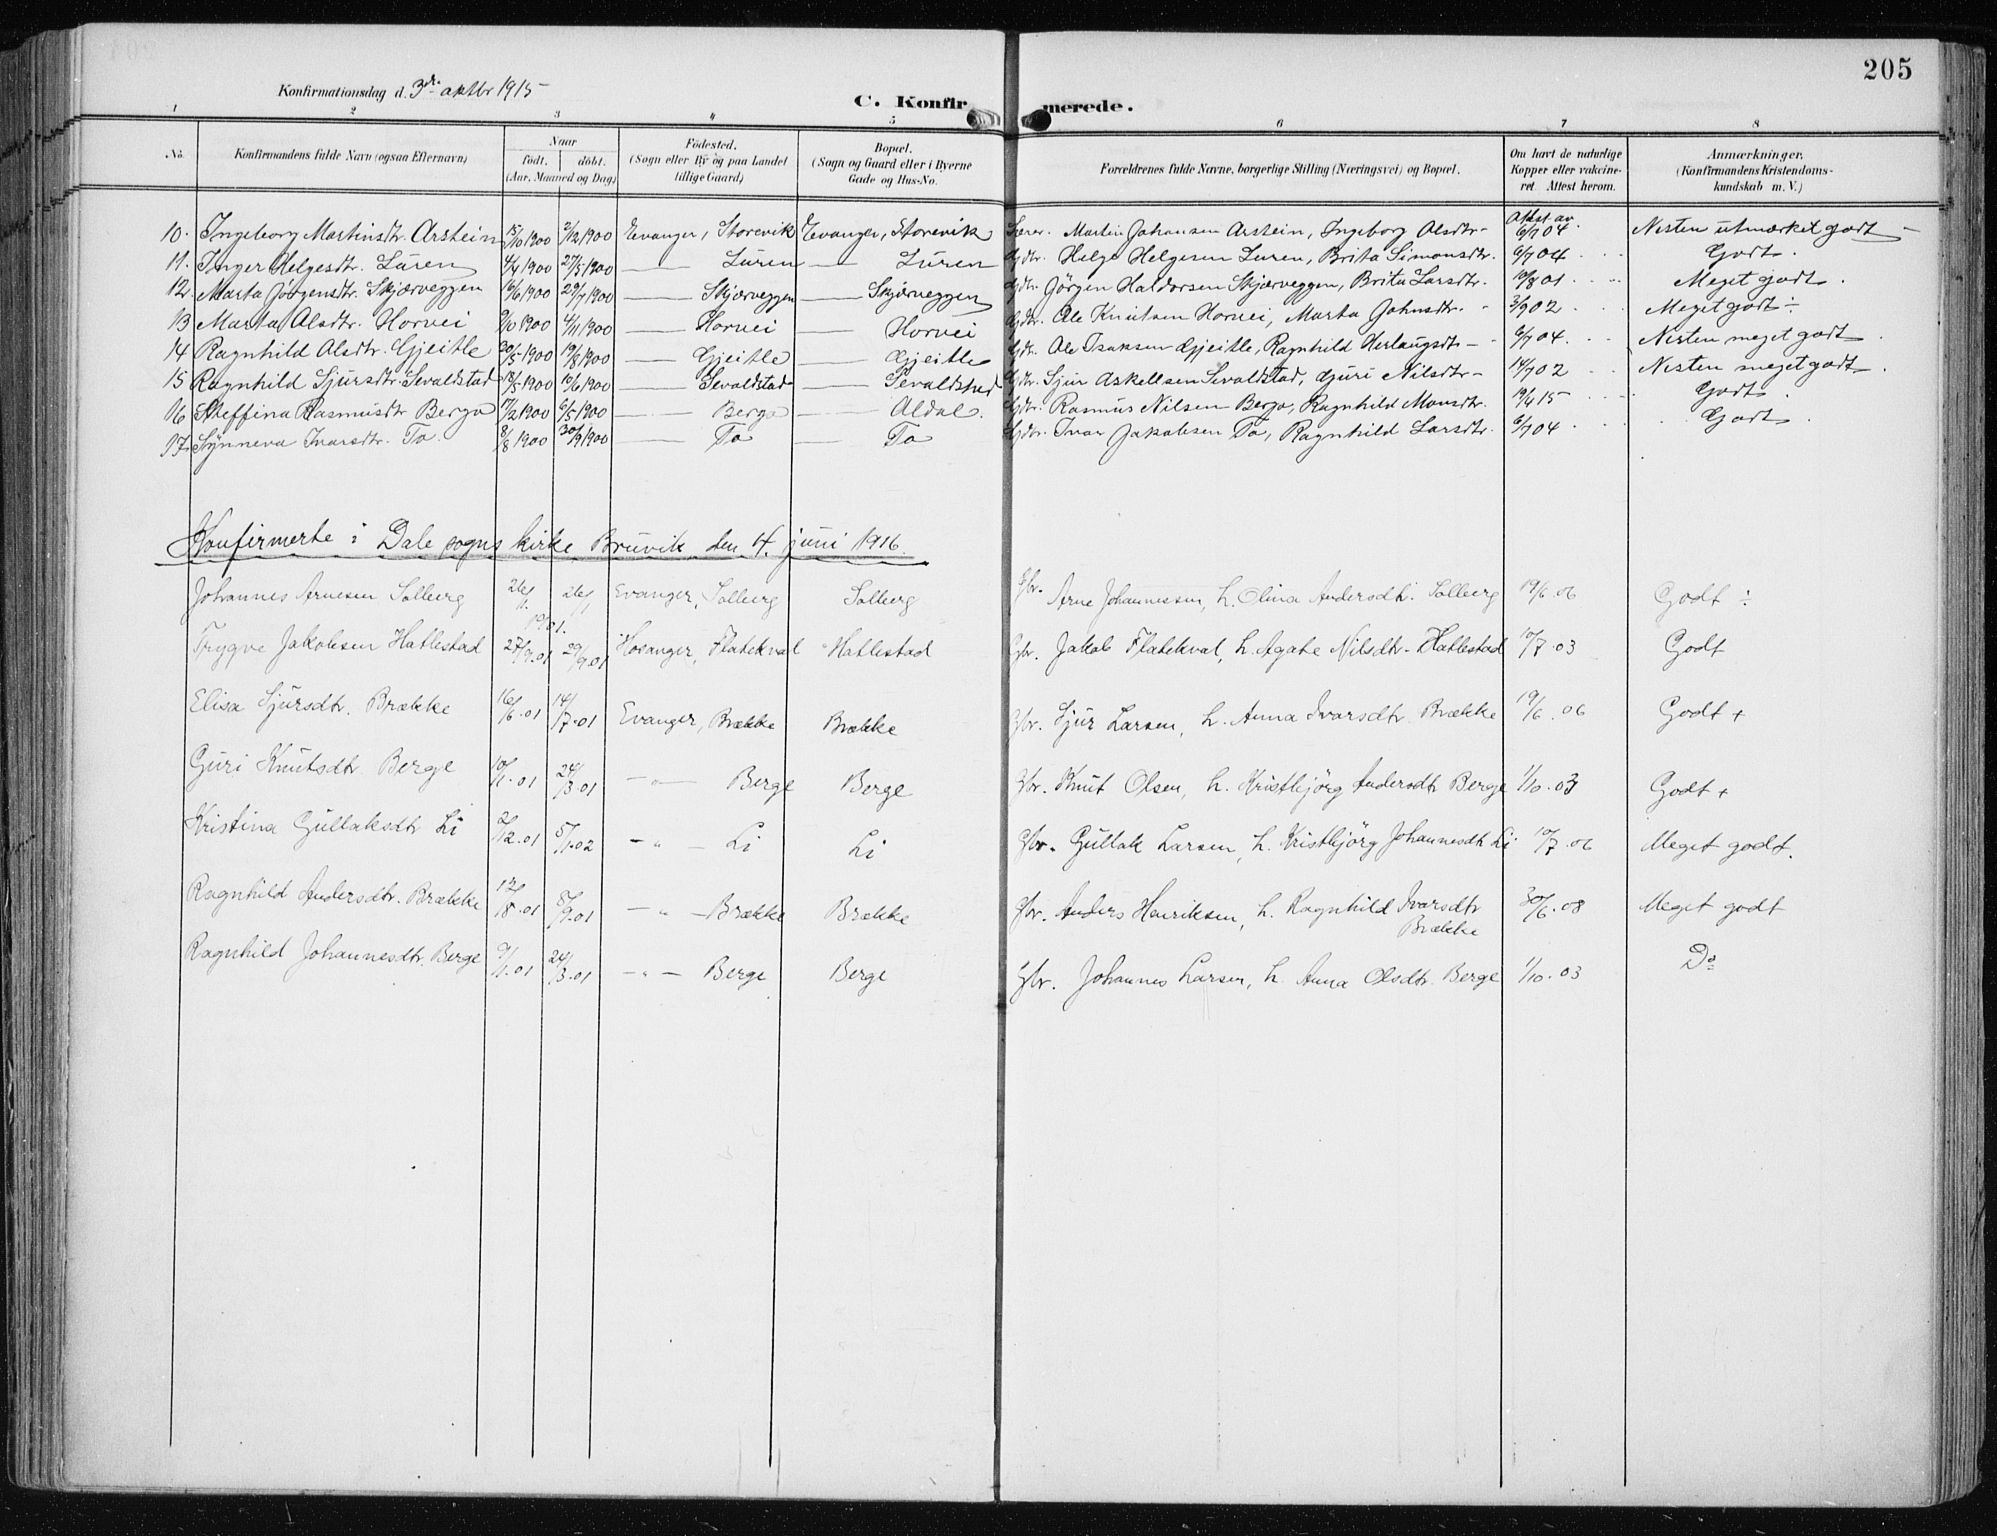 205
Konfirmationsdag d. 3die oktbr 1915
C. Konfirmerede.
1 2 3 4 5 6 7 8
No. Konfirmandens fulde Navn (ogsaa Efternavn) Naar født. døbt. (Aar, Maaned og Dag) Fødested. (Sogn eller By og paa Landet tillige Gaard) Bopæl. (Sogn og Gaard eller i Byerne Gade og Hus-No. Forældrenes fulde Navne, borgerlige Stilling (Næringsvei) og Bopæl. Om havt de naturlige Kopper eller vaccineret. Attest herom. Anmærkninger. (Konfirmandens Kristendomskundskab m. V.)
10. Ingeborg Martinsdtr. Arstein 15/10 1900 2/12 1900 Evanger, Storevik Evanger, Storevik Lærer. Martin Johansen Arstein, Ingeborg Olsdtr- Attst av 6/7 04. Nesten utmærket godt -
11. Inger Helgesdtr. Luren 4/4 1900 27/5 1900 — Luren — Luren Gdbr. Helge Helgesen Luren, Brita Simonsdtr. 6/7 04 Godt.
12. Marta Jørgensdtr. Skjærveggen 16/6 1900 29/7 1900 — Skjærveggen — Skjærveggen Gdbr. Jörgen Haldorsen Skjærveggen, Brita Larsdtr. 19/8 01 Meget godt.
13 Marta Olsdtr. Horvei 9/10 1900 4/11 1900 — Horvei — Horvei Gdbr. Ole Knutsen Horvei, Marta Johnsdtr. 3/9 02 Meget godt ÷
14 Ragnhild Olsdtr. Gjeitle 20/5 1900 19/8 1900 — Gjeitle — Gjeitle Gdbr. Ole Isaksen Gjeitle, Ragnhild Herlaugsdt- 6/7 04. Nesten meget godt.
15 Ragnhild Sjursdtr. Sevaldstad 18/5 1900 10/6 1900 — Sevaldstad — Sevaldstad Gdbr. Sjur Askellsen Sevaldstad, Guri Nilsdtr- 14/7 02 Nesten meget godt.
16 Steffina Rasmusdtr Bergo 17/2 1900 6/5 1900 — Bergo — Aldal. Gdbr. Rasmus Nilsen Bergo, Ragnhild Monsdtr. 19/4 15 Godt.
17. Synneva Ivarsdtr. Fo 8/8 1900 30/9 1900 — Fo — Fo Gdbr. Ivar Jakobsen Fo, Ragnhild Larsdtr. 6/7 04 Godt.
Konfirmerte i Dale sogns kirke, Bruvik den 4. juni 1916.
Johannes Arnesen Solberg 26/1. 1901. 26/1 Evanger, Solberg Solberg Gbr. Arne Johannessen, h. Olina Andersdtr. Solberg 19/6 06 Godt ÷
Trygve Jakobsen Hatlestad 27/9.01 29/9.01 Hosanger, Flatekval Hatlestad Gbr. Jakob Flatekval, h. Agate Nilsdtr- Hatlestad 10/7.03 Godt
Elisa Sjursdtr. Brække 16/6.01 14/7.01 Evanger, Brække Brække Gbr. Sjur Larsen, h. Anna Ivarsdtr. Brække 19/6.06 Godt +
Guri Knutsdtr Berge 10/11.01 24/3.01 — " — Berge Berge Gbr. Knut Olsen, h. Kristbjörg Andersdtr Berge 1/10.03 Godt +
Kristina Gullaksdtr Li 2/12.01 5/1.02 — " — Li Li Gbr. Gullak Larsen, h. Kristbjörg Johannesdtr Li 10/7.06 Meget godt.
Ragnhild Andersdtr. Brække 12/8.01 8/9.01 — " — Brække Brække Gbr. Anders Henriksen, h. Ragnhild Ivarsdtr Brække 30/6.08 Meget godt
Ragnhild Johannesdtr. Berge 9/1.01 24/3.01 — " — Berge Berge Gbr. Johannes Larsen, h. Anna Olsdtr. Berge 1/10.03 Do